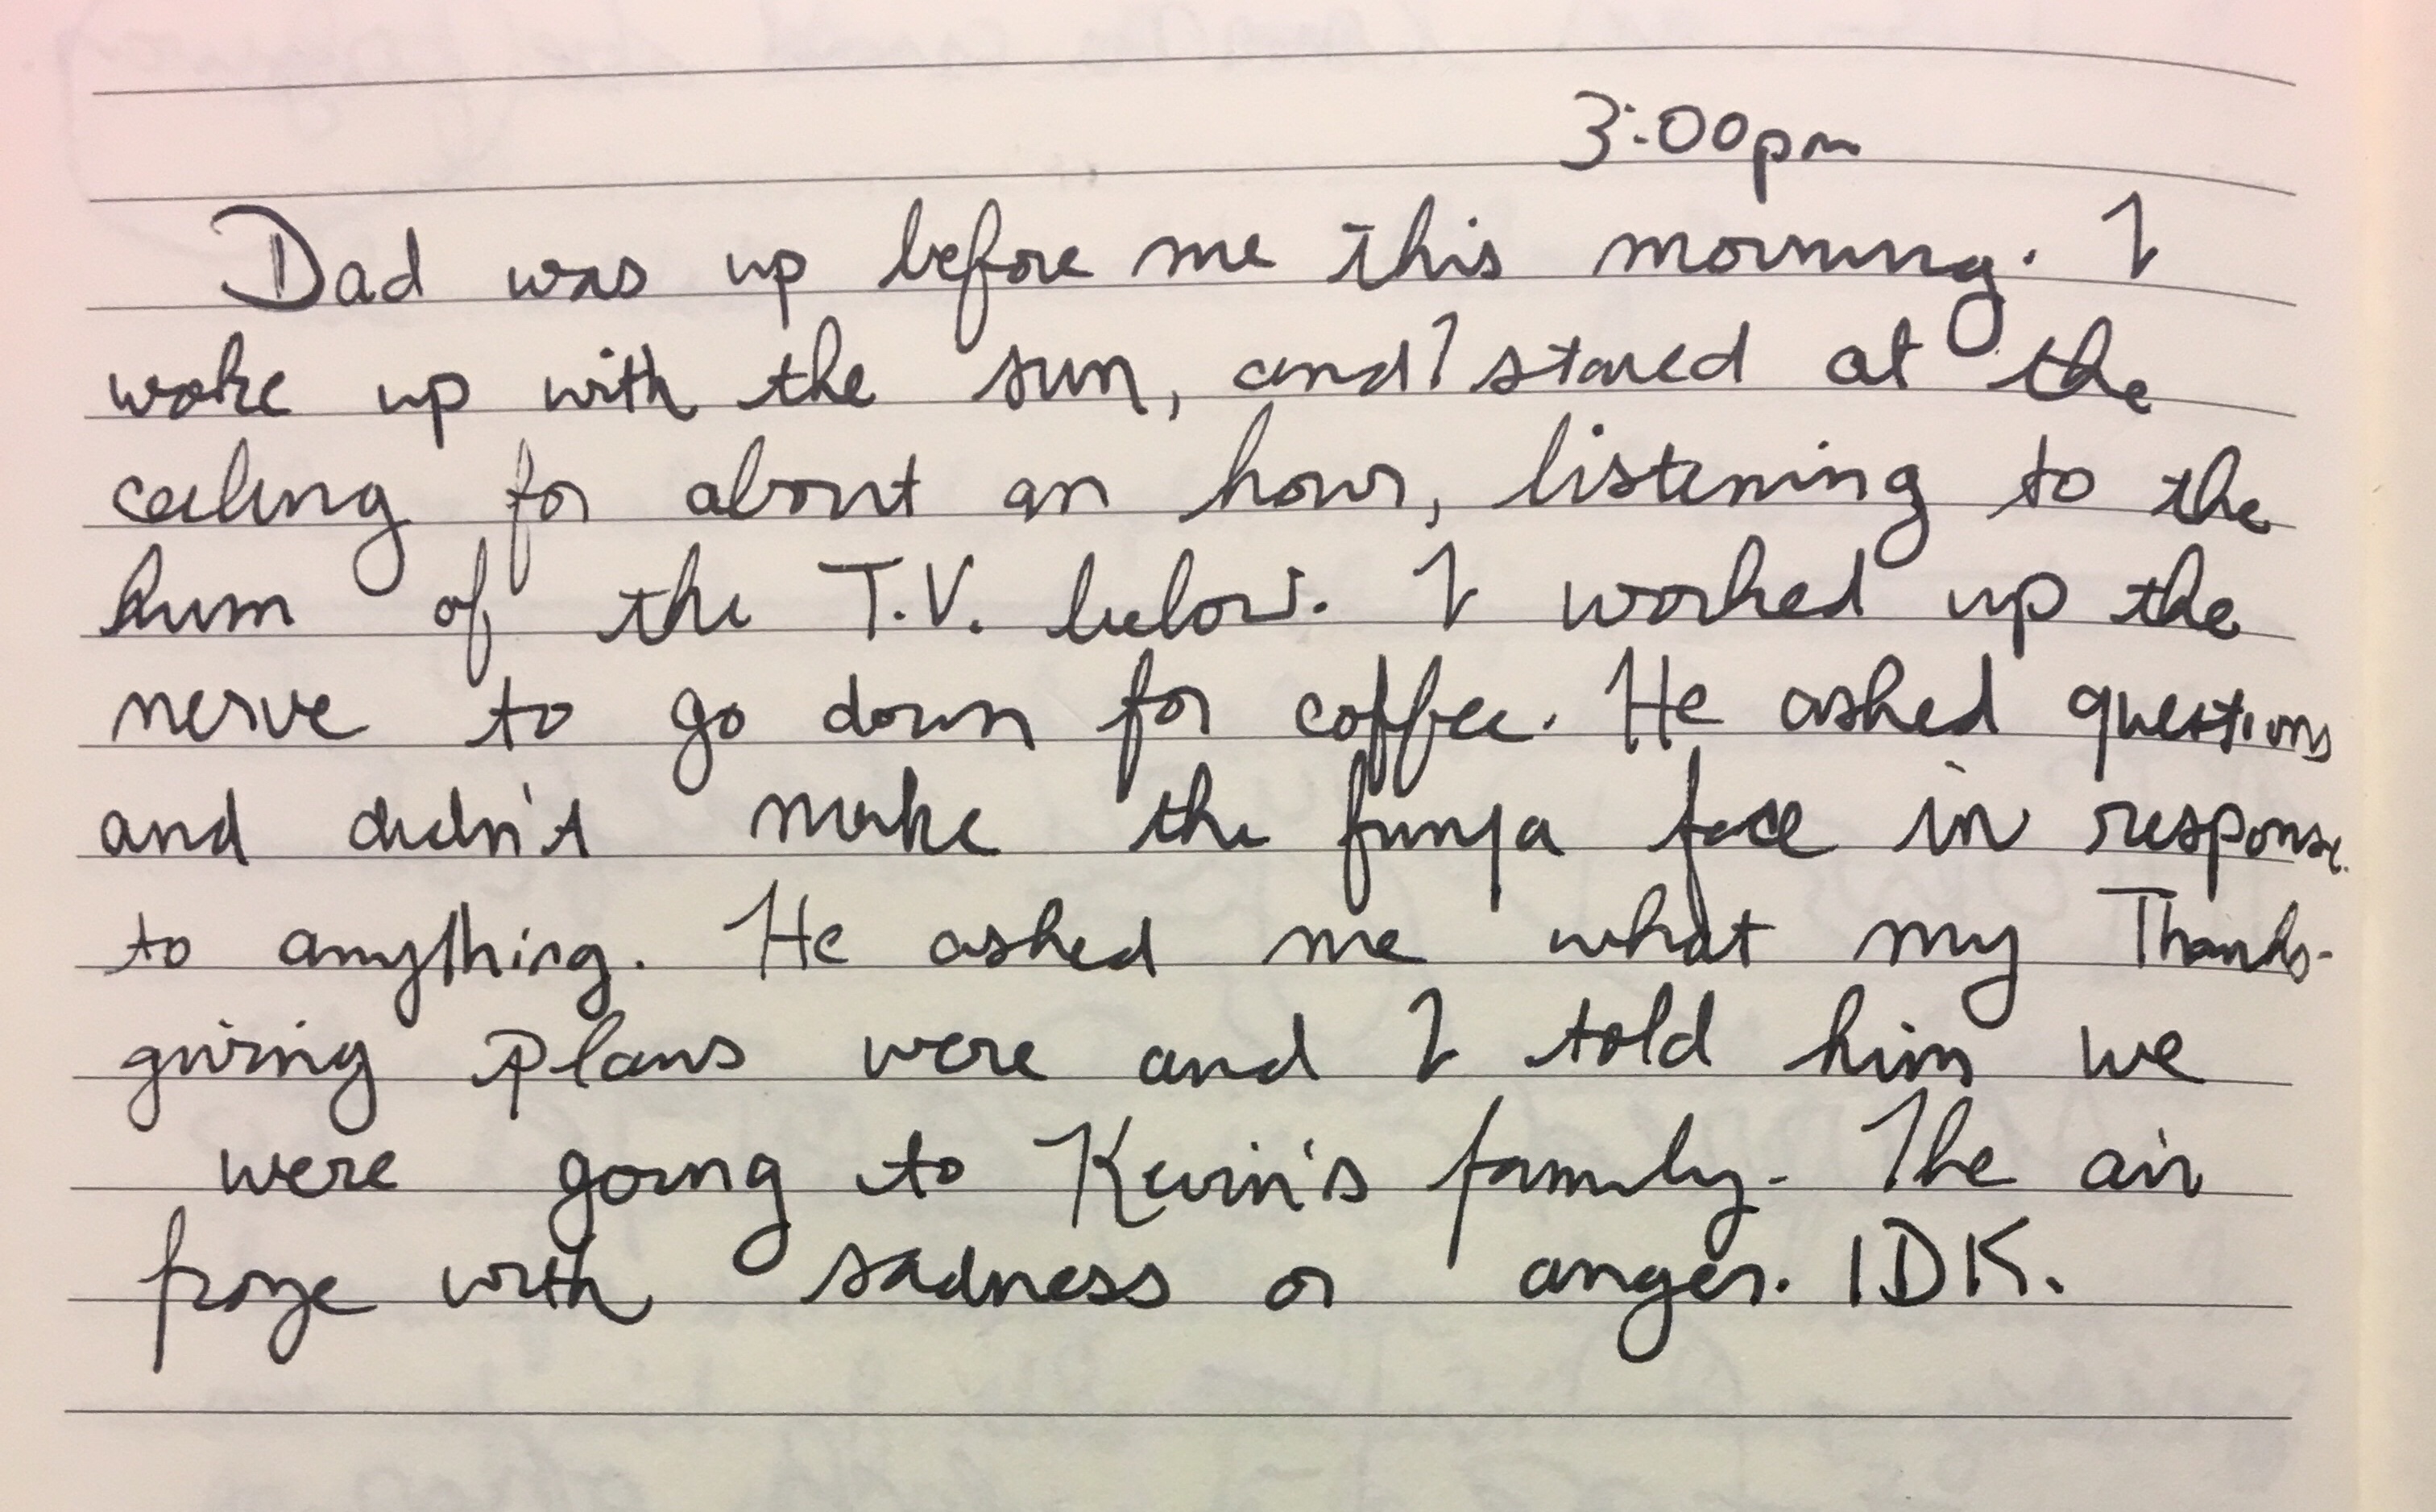 3:00pm
Dad was up before me this morning. I
woke up with the sun, and I stared at the
ceiling for about an hour, listening to the
hum of the T.V. below. I worked up the
nerve to go down for coffee. He asked questions
and didn't make the funja face in response
to anything. He asked me what my Thanks-
giving plans were and I told him we
were going to Kevin's family. The air
froze with sadness or anger. IDK.